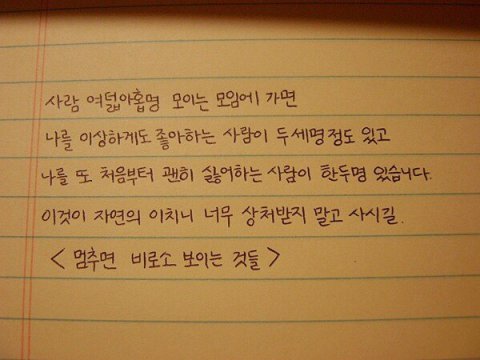 사람 여덟아홉명 모이는 모임에 가면
나를 이상하게도 좋아하는 사람이 두세명정도 있고
나를 또 처음부터 괜히 싫어하는 사람이 한두명 있습니다.
이것이 자연의 이치니 너무 상처받지 말고 사시길.
<멈추면 비로소 보이는 것들>